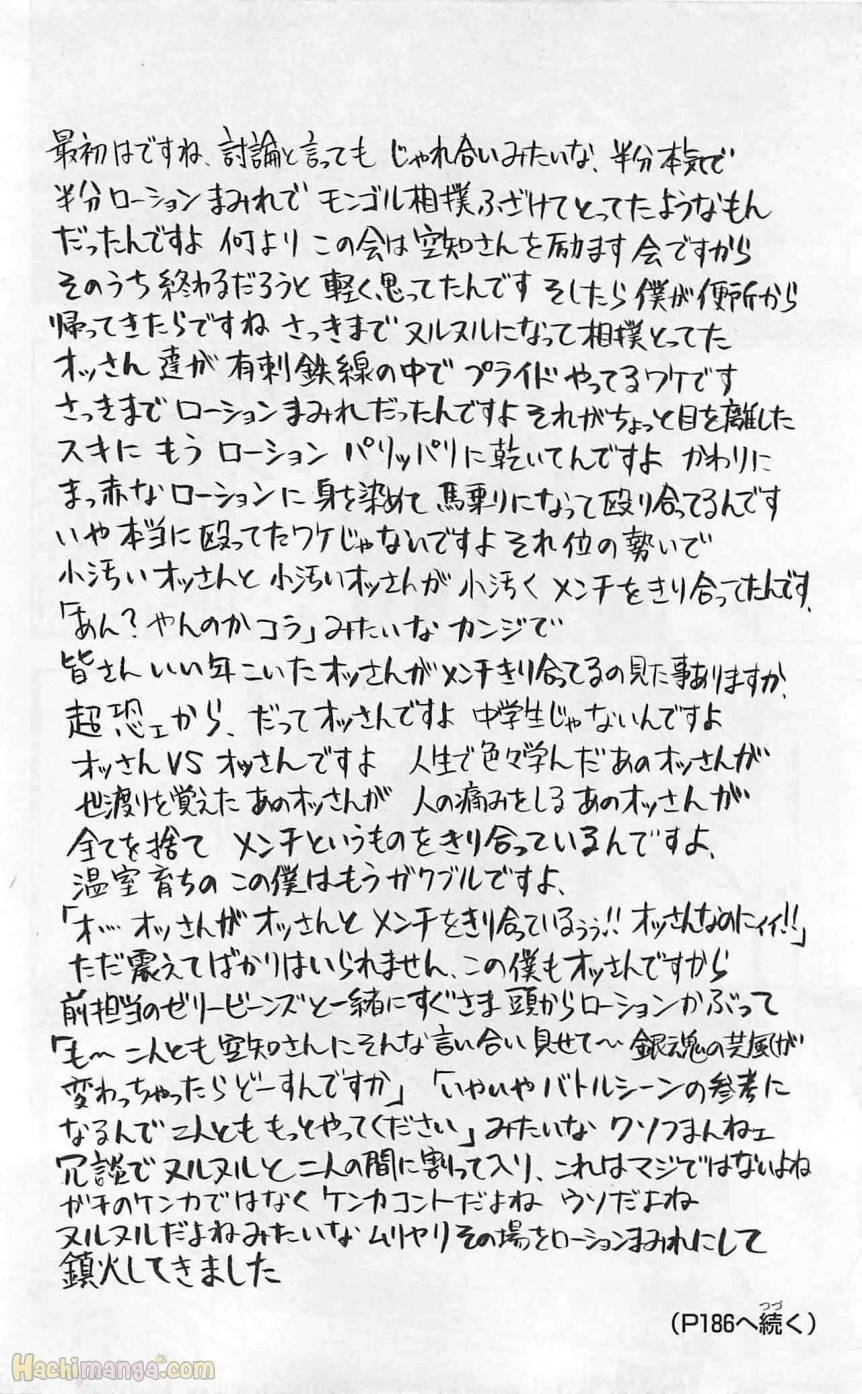 最初はですね、討論と言っても じゃれ合いみたいな、半分本気で
半分ローションまみれで モンゴル相撲ふざけてとってたようなもん
だったんですよ 何より この会は空知さんを励ます会ですから
そのうち終わるだろうと 軽く思ってたんです そしたら 僕が便所から
帰ってきたらですね さっきまで ヌルヌルになって相撲とってた
オッさん達が 有刺鉄線の中で プライドやってるワケです
さっきまで ローションまみれだったんですよ それがちょっと目を離した
スキに もう ローション パリッパリに乾いてんですよ かわりに
まっ赤なローションに 身を染めて 馬乗りになって殴り合ってるんです
いや 本当に殴ってたワケじゃないですよ それ位の勢いで
小汚いオッさんと 小汚いオッさんが 小汚く メンチをきり合ってたんです、
「あん?やんのかコラ」みたいな カンジで
皆さん いい年こいたオッさんがメンチきり合ってるの見た事ありますか、
超恐ェから、だってオッさんですよ 中学生じゃないんですよ
オッさんVSオッさんですよ 人生で色々学んだあのオッさんが
世渡りを覚えた あのオッさんが 人の痛みをしる あのオッさんが
全てを捨て メンチというものをきり合っているんですよ、
温室育ちの この僕はもうガクブルですよ、
「オ… オッさんがオッさんと メンチをきり合っているぅぅ!! オッさんなのにィィ!!」
ただ震えてばかりはいられません、この僕もオッさんですから
前担当のゼリービーンズと一緒にすぐさま 頭からローションかぶって
「も〜二人とも 空知さんにそんな言い合い見せて〜 銀魂の芸風が
変わっちゃったらどーすんですか」「いやいや バトルシーンの参考に
なるんで 二人とも もっとやってください」みたいな クソつまんねェ
冗談で ヌルヌルと二人の間に割って入り、これはマジではないよね
ガチのケンカではなく ケンカコントだよね ウソだよね
ヌルヌルだよねみたいな ムリヤリその場をローションまみれにして
鎮火してきました
(P186へ続く)
つづ
Hachimanga.com